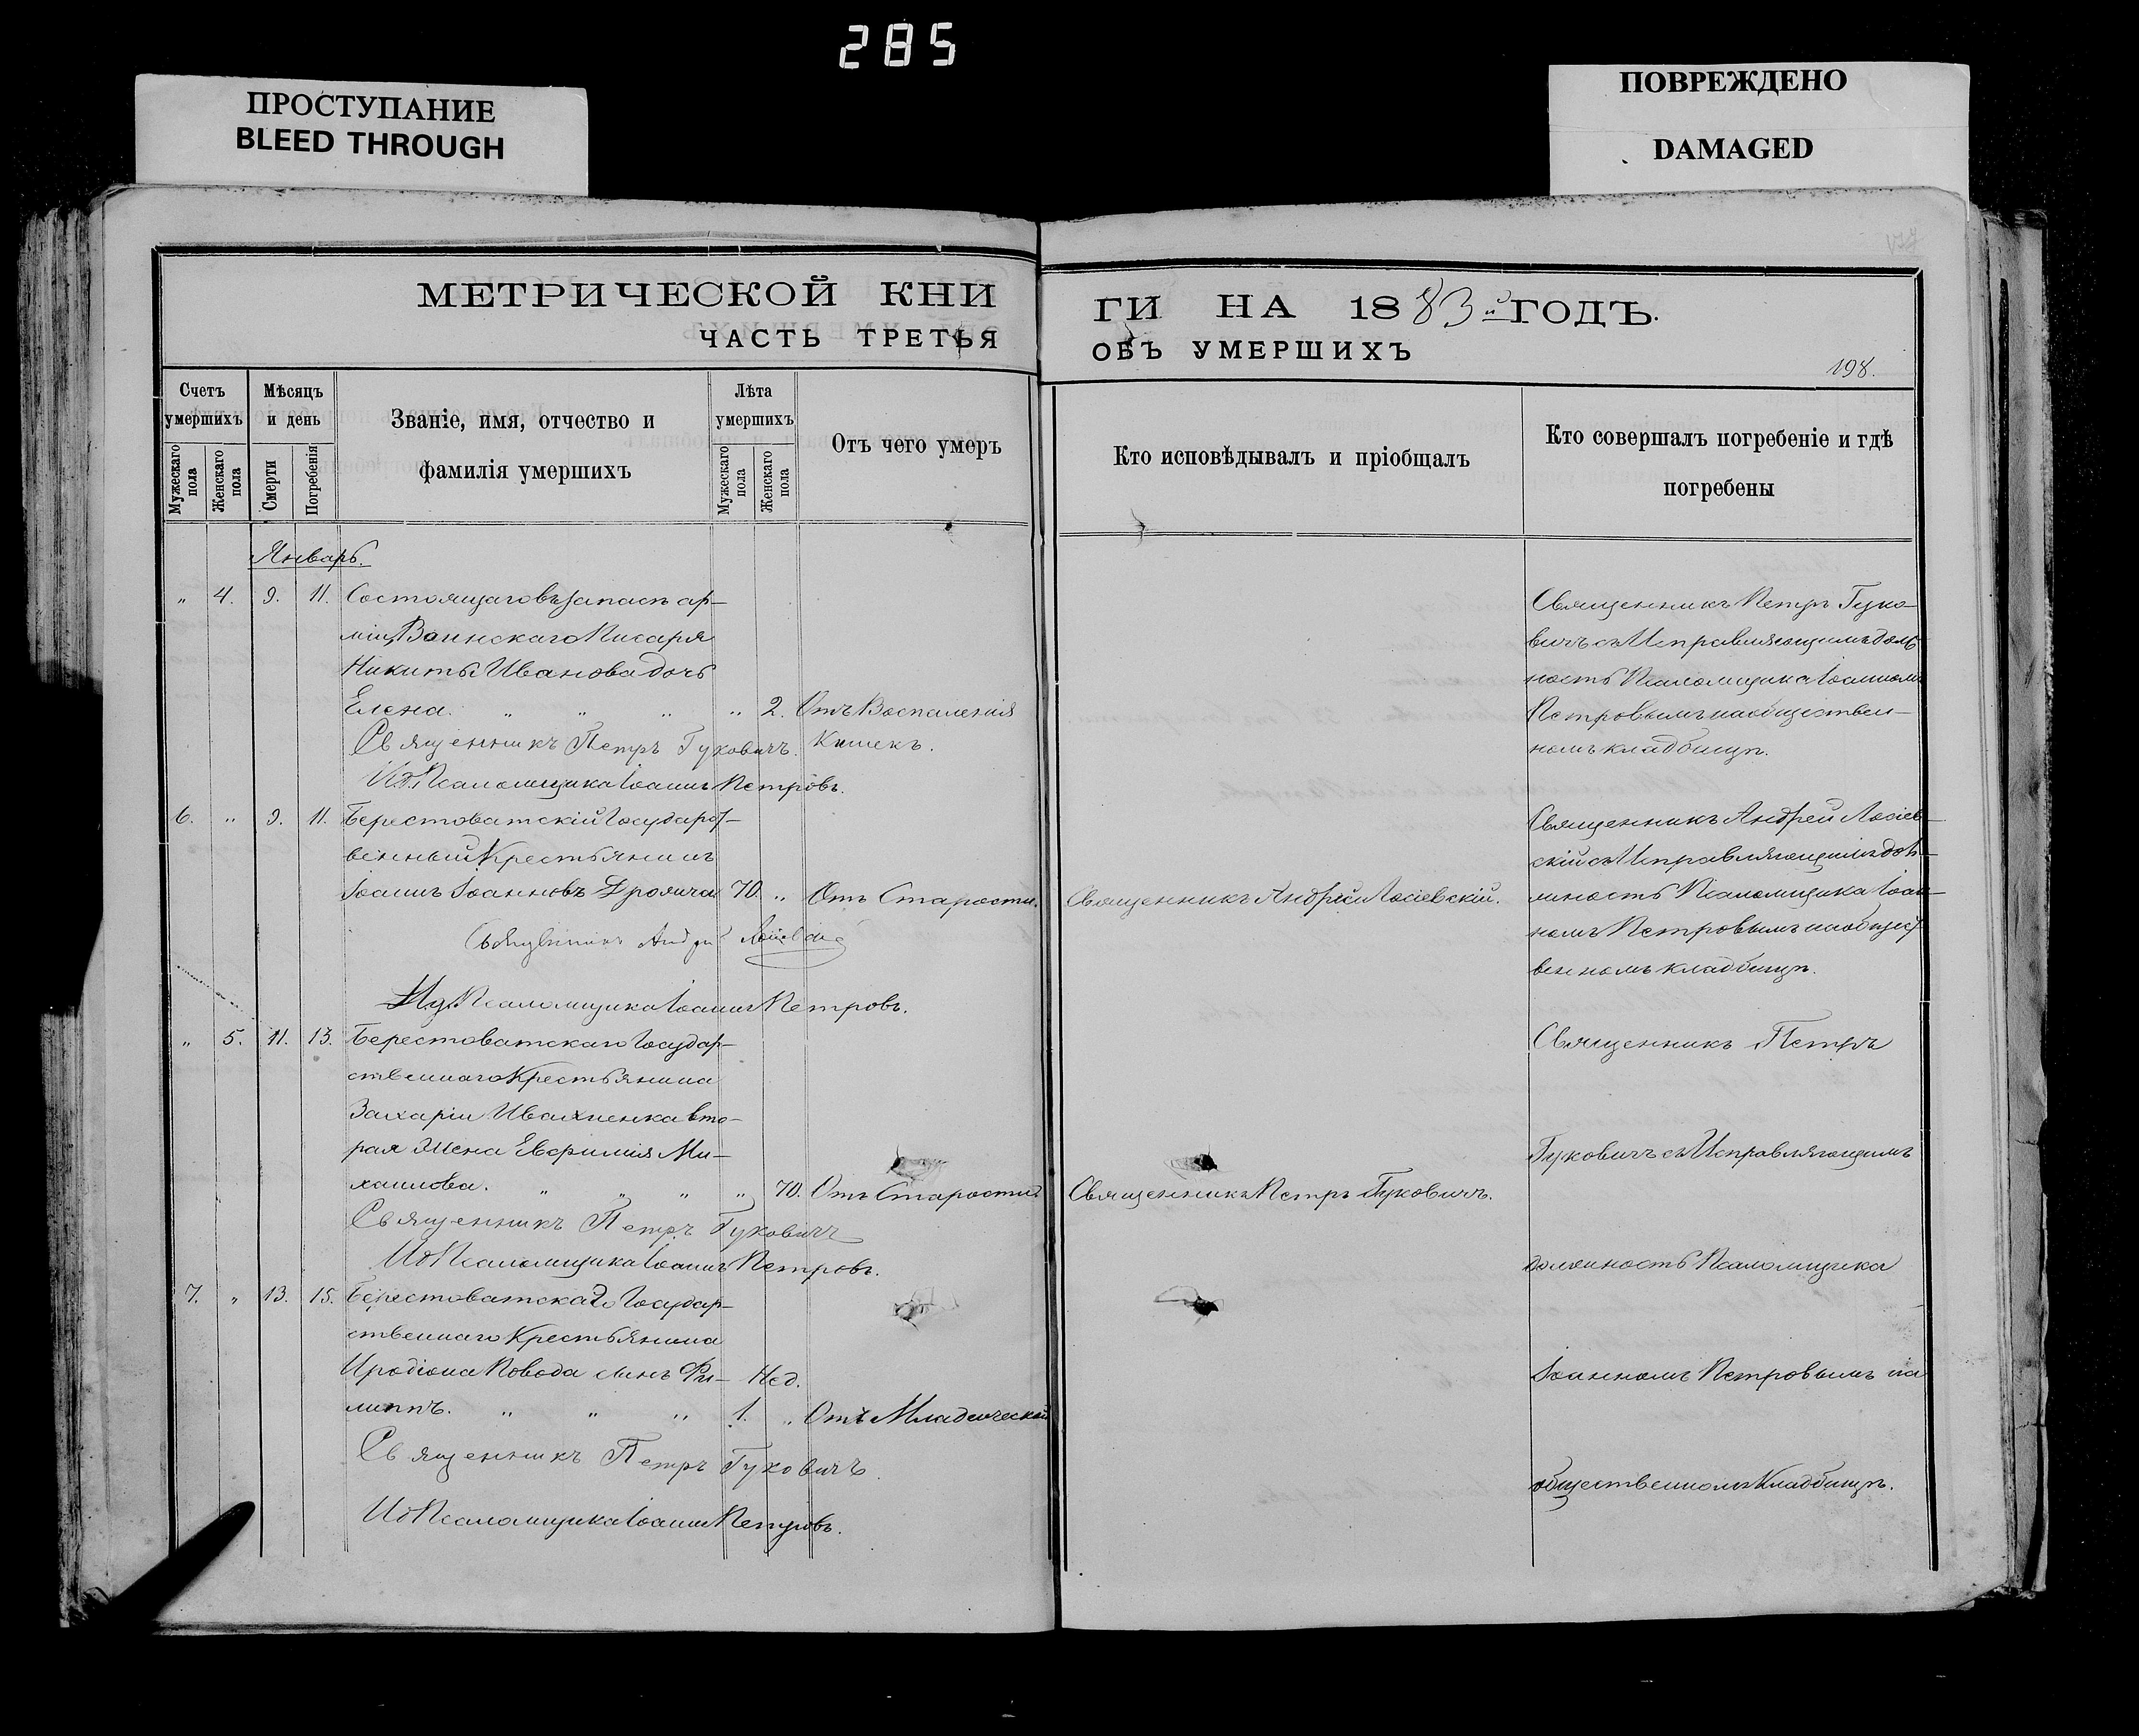 285
ПРОСТУПАНИЕ
BLEED THROUGH
ПОВРЕЖДЕНО
DAMAGED
МЕТРИЧЕСКОЙ КНИ
ЧАСТЬ ТРЕТЬЯ
ГИ НА 1883й ГОДЪ.
ОБЪ УМЕРШИХЪ
198.
Счетъ умершихъ
Мужескаго пола
Женскаго пола
Мѣсяцъ и день
Смерти
Погребенія
Званіе, имя, отчество и
фамилія умершихъ
Лѣта умершихъ
Мужескаго пола
Женскаго пола
Отъ чего умеръ
Кто исповѣдывалъ и пріобщалъ
Кто совершалъ погребеніе и гдѣ
погребены
Январь.
„ 4. 9. 11. Состоящаго въ запасѣ ар-
міи, Воинскаго Писаря
Никиты Иванова дочь
Елена. „ „ „ „ 2. Отъ Воспаленія
Кишекъ.
Священникъ Петръ Гуковичъ.
И.д. Псаломщика Іоаннъ Петровъ.
Священникъ Петръ Гуко-
вичъ съ Исправляющимъ долж-
ность Псаломщика Іоанномъ
Петровымъ на обществен-
номъ кладбищѣ.
6. „ 9. 11. Берестоватскій Государст-
венный Крестьянинъ
Іоаннъ Іоанновъ 70. „ Отъ Старости.
Священникъ Андрей Лосіевскій.
Священникъ Андрей Лосіевскій
И.д. Псаломщика Іоаннъ Петровъ.
Священникъ Андрей Лосіев-
скій съ Исправляющимъ дол-
жность Псаломщика Іоан-
номъ Петровымъ на общест-
венномъ кладбищѣ.
„ 5. 11. 13. Берестоватскаго Государ-
ственнаго Крестьянина
Захаріи Ивахненка вто-
рая Жена Евфимія Ми-
хаилова. „ „ „ „ 70. Отъ Старости
Священникъ Петръ Гуковичъ.
Священникъ Петръ Гуковичъ
И.д. Псаломщика Іоаннъ Петровъ.
7. „ 13. 15. Берестоватскаго Государ-
ственнаго Крестьянина
Иродіона Повода сынъ Фи- Нед.
липпъ. „ „ „ 1. „ Отъ Младенческой
Священникъ Петръ Гуковичъ.
И.д. Псаломщика Іоаннъ Петровъ.
Священникъ Петръ
Гуковичъ съ Исправляющимъ
должность Псаломщика
Іоанномъ Петровымъ на
общественномъ Кладбищѣ.